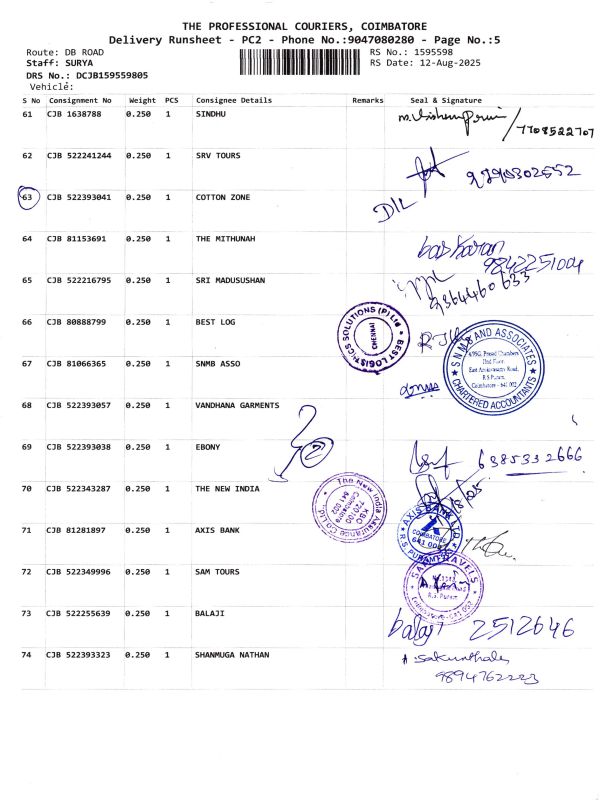 THE PROFESSIONAL COURIERS, COIMBATORE
Delivery Runsheet - PC2 - Phone No.:9047080280 - Page No.:5
Route: DB ROAD RS No.: 1595598
Staff: SURYA RS Date: 12-Aug-2025
DRS No.: DCJB159559805
Vehicle:
S No Consignment No Weight PCS Consignee Details Remarks Seal & Signature
61 CJB 1638788 0.250 1 SINDHU
7708522707
62 CJB 522241244 0.250 1 SRV TOURS
63 CJB 522393041 0.250 1 COTTON ZONE D/L
64 CJB 81153691 0.250 1 THE MITHUNAH baskaran
9842251004
65 CJB 522216795 0.250 1 SRI MADUSUSHAN
9364460633
66 CJB 80888799 0.250 1 BEST LOG
BEST LOGISTICS SOLUTIONS (P) Ltd
CHENNAI
67 CJB 81066365 0.250 1 SNMB ASSO
AND ASSOCIATES
CHARTERED ACCOUNTANTS
2nd Floor
East Arokiasamy Road,
R.S Puram,
Coimbatore - 641 002
68 CJB 522393057 0.250 1 VANDHANA GARMENTS
2
69 CJB 522393038 0.250 1 EBONY 6385332666
70 CJB 522343287 0.250 1 THE NEW INDIA
The New India Assurance
71 CJB 81281897 0.250 1 AXIS BANK
AXIS BANK LTD
COIMBATORE
R.S. PURAM
72 CJB 522349996 0.250 1 SAM TOURS
R.S. Puram
73 CJB 522255639 0.250 1 BALAJI balaji 2512646
74 CJB 522393323 0.250 1 SHANMUGA NATHAN A sakunthala
9894762223